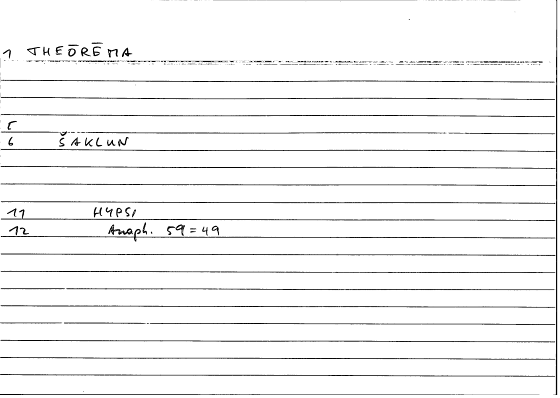 1 THEŌRĒMA
5
6 ŠAKLUN
11 HYPSI
12 Anaph. 59 = 49